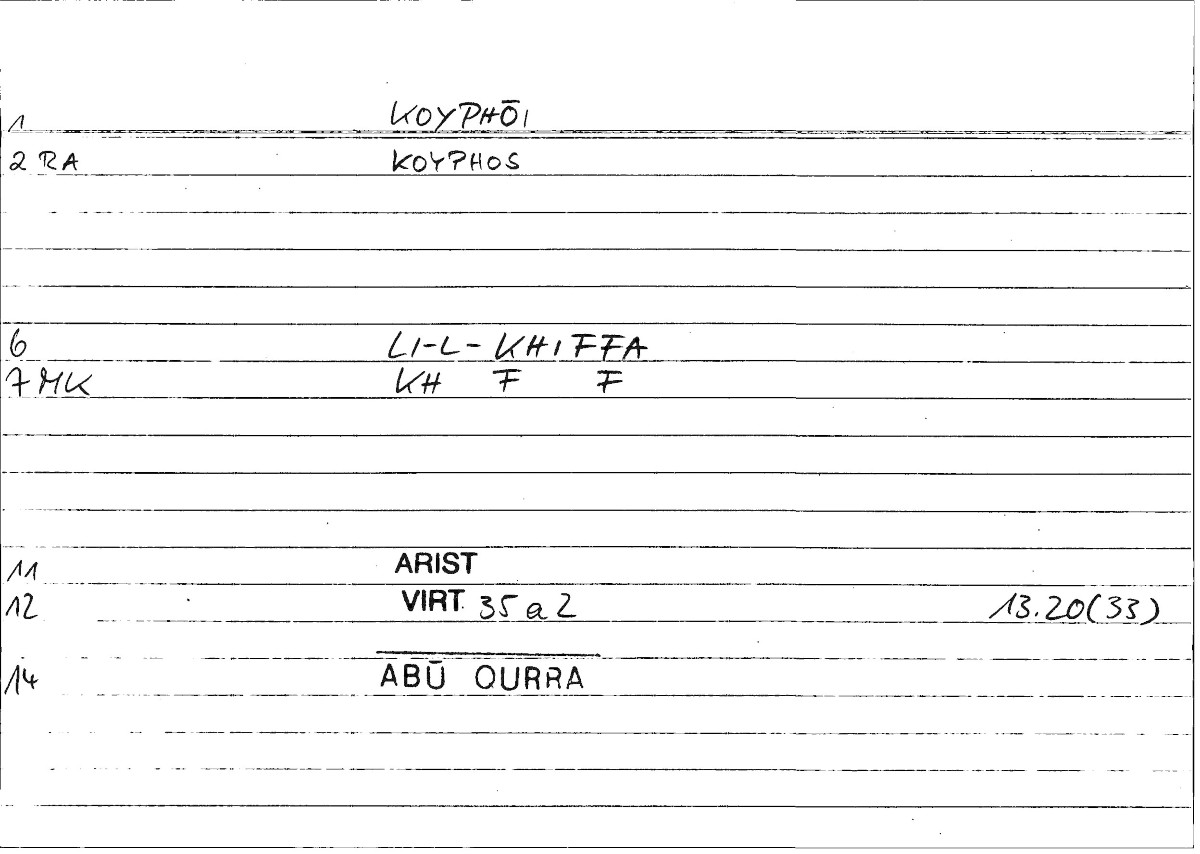 1 KOYPHŌI
2 RA KOYPHOS
6 LI-L-KHIFFA
7 MK KH F F
11 ARIST
12 VIRT 35 a 2 13.20(33)
14 ABŪ QURRA